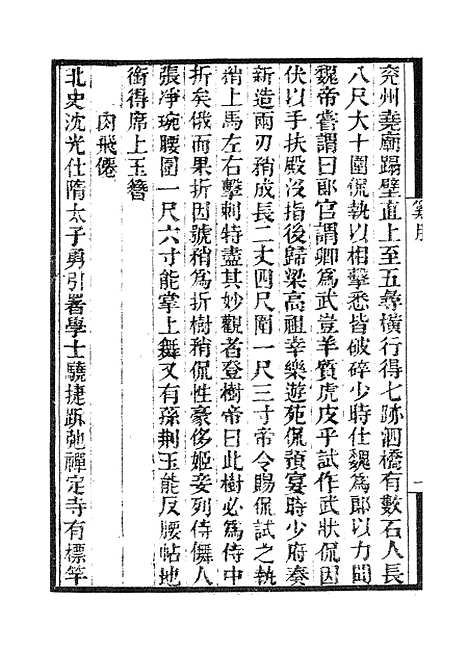 兗州堯廟蹋壁直上至五尋橫行得七跡泗橋有數石人長
八尺大十圍侃執以相擊悉皆破碎少時仕魏爲郎以力聞
魏帝嘗謂曰郎官謂卿爲武豈羊質虎皮乎試作武狀侃因
伏以手扶殿沒指後歸梁高祖幸樂遊苑侃預宴時少府奏
新造兩刃矟成長二丈四尺圍一尺三寸帝令賜侃試之執
矟上馬左右擊刺特盡其妙觀者登樹帝曰此樹必爲侍中
折矣俄而果折因號矟爲折樹矟侃性豪侈姬妾列侍儛人
張凈琬腰圍一尺六寸能掌上舞又有孫荆玉能反腰帖地
銜得席上玉簪
肉飛僊
北史沈光仕隋太子勇引署學士驍捷跅弛禪定寺有標竿